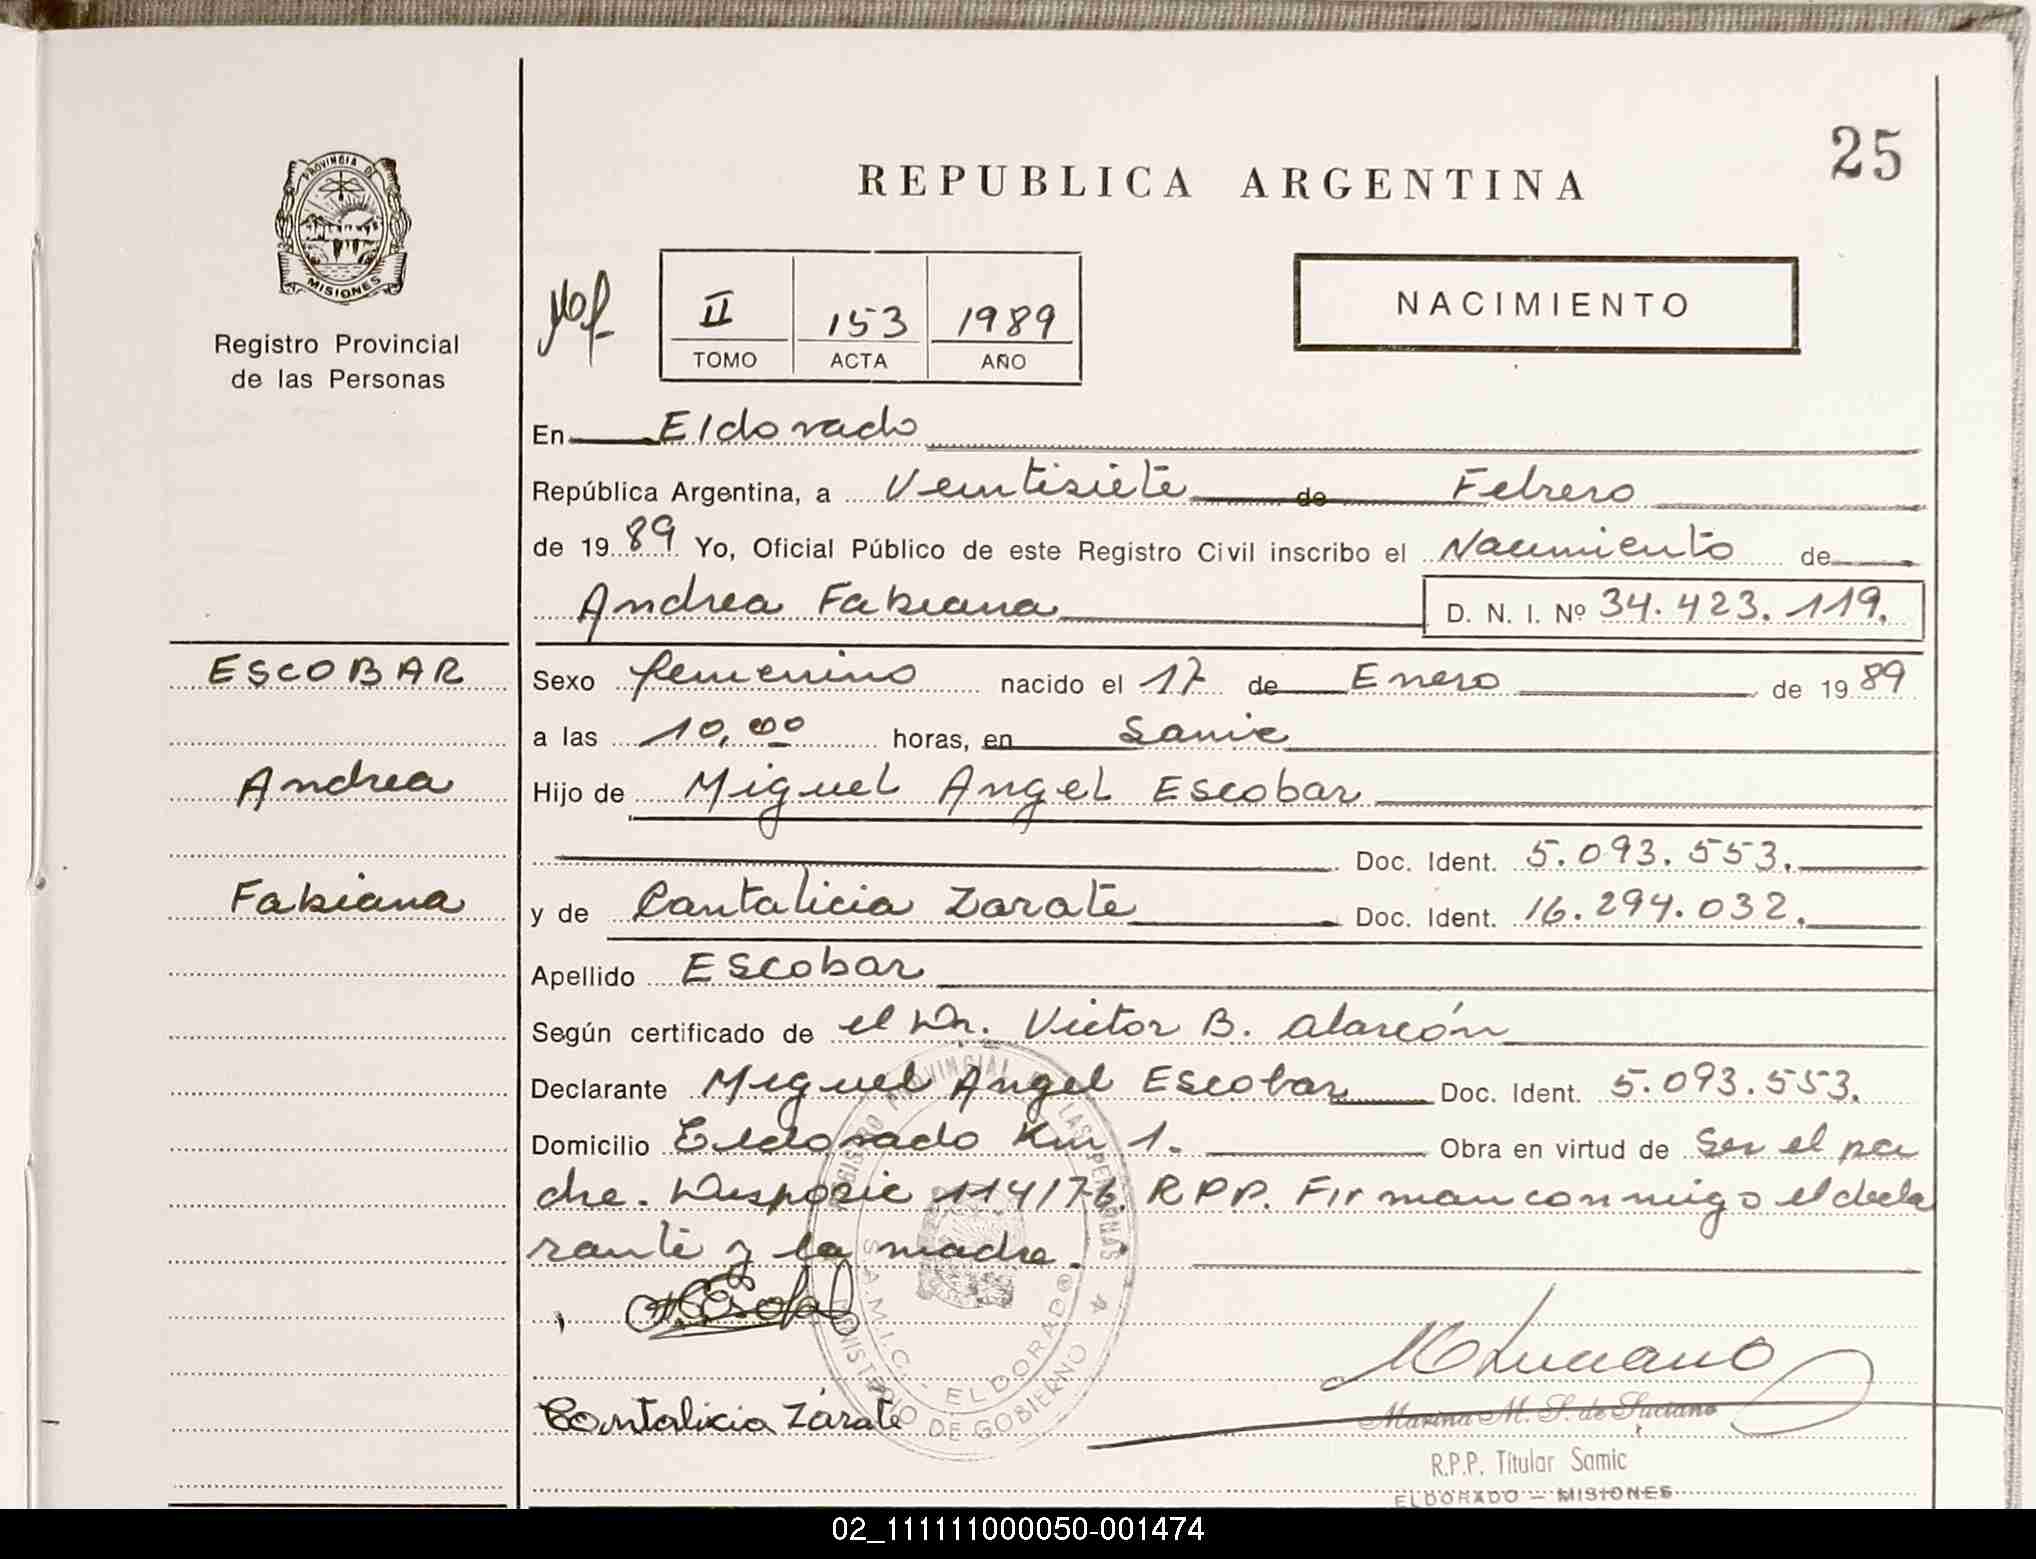 25
REPUBLICA ARGENTINA
PROVINCIA DE
MISIONES
Registro Provincial
de las Personas
II 153 1989
TOMO ACTA AÑO
NACIMIENTO
En Eldorado
República Argentina, a Veintisiete de Febrero
de 1989 Yo, Oficial Público de este Registro Civil inscribo el Nacimiento de
Andrea Fabiana D. N. I. Nº 34.423.119.
ESCOBAR
Andrea
Fabiana
Sexo femenino nacido el 17 de Enero de 1989
a las 10,00 horas, en Samic
Hijo de Miguel Angel Escobar
Doc. Ident. 5.093.553.
y de Cantalicia Zarate Doc. Ident. 16.294.032.
Apellido Escobar
Según certificado de el Dr. Victor B. Alarcón
Declarante Miguel Angel Escobar Doc. Ident. 5.093.553.
Domicilio Eldorado Km 1. Obra en virtud de Ser el pa
dre. Disposic 114/76. R.P.P. Firman conmigo el decla
rante y la madre.
REGISTRO PROVINCIAL DE LAS PERSONAS
S.A.M.I.C. - ELDORADO
MINISTERIO DE GOBIERNO
Cantalicia Zárate
M Luciano
Marina M. S. de Luciano
R.P.P. Titular Samic
ELDORADO — MISIONES
02_111111000050-001474